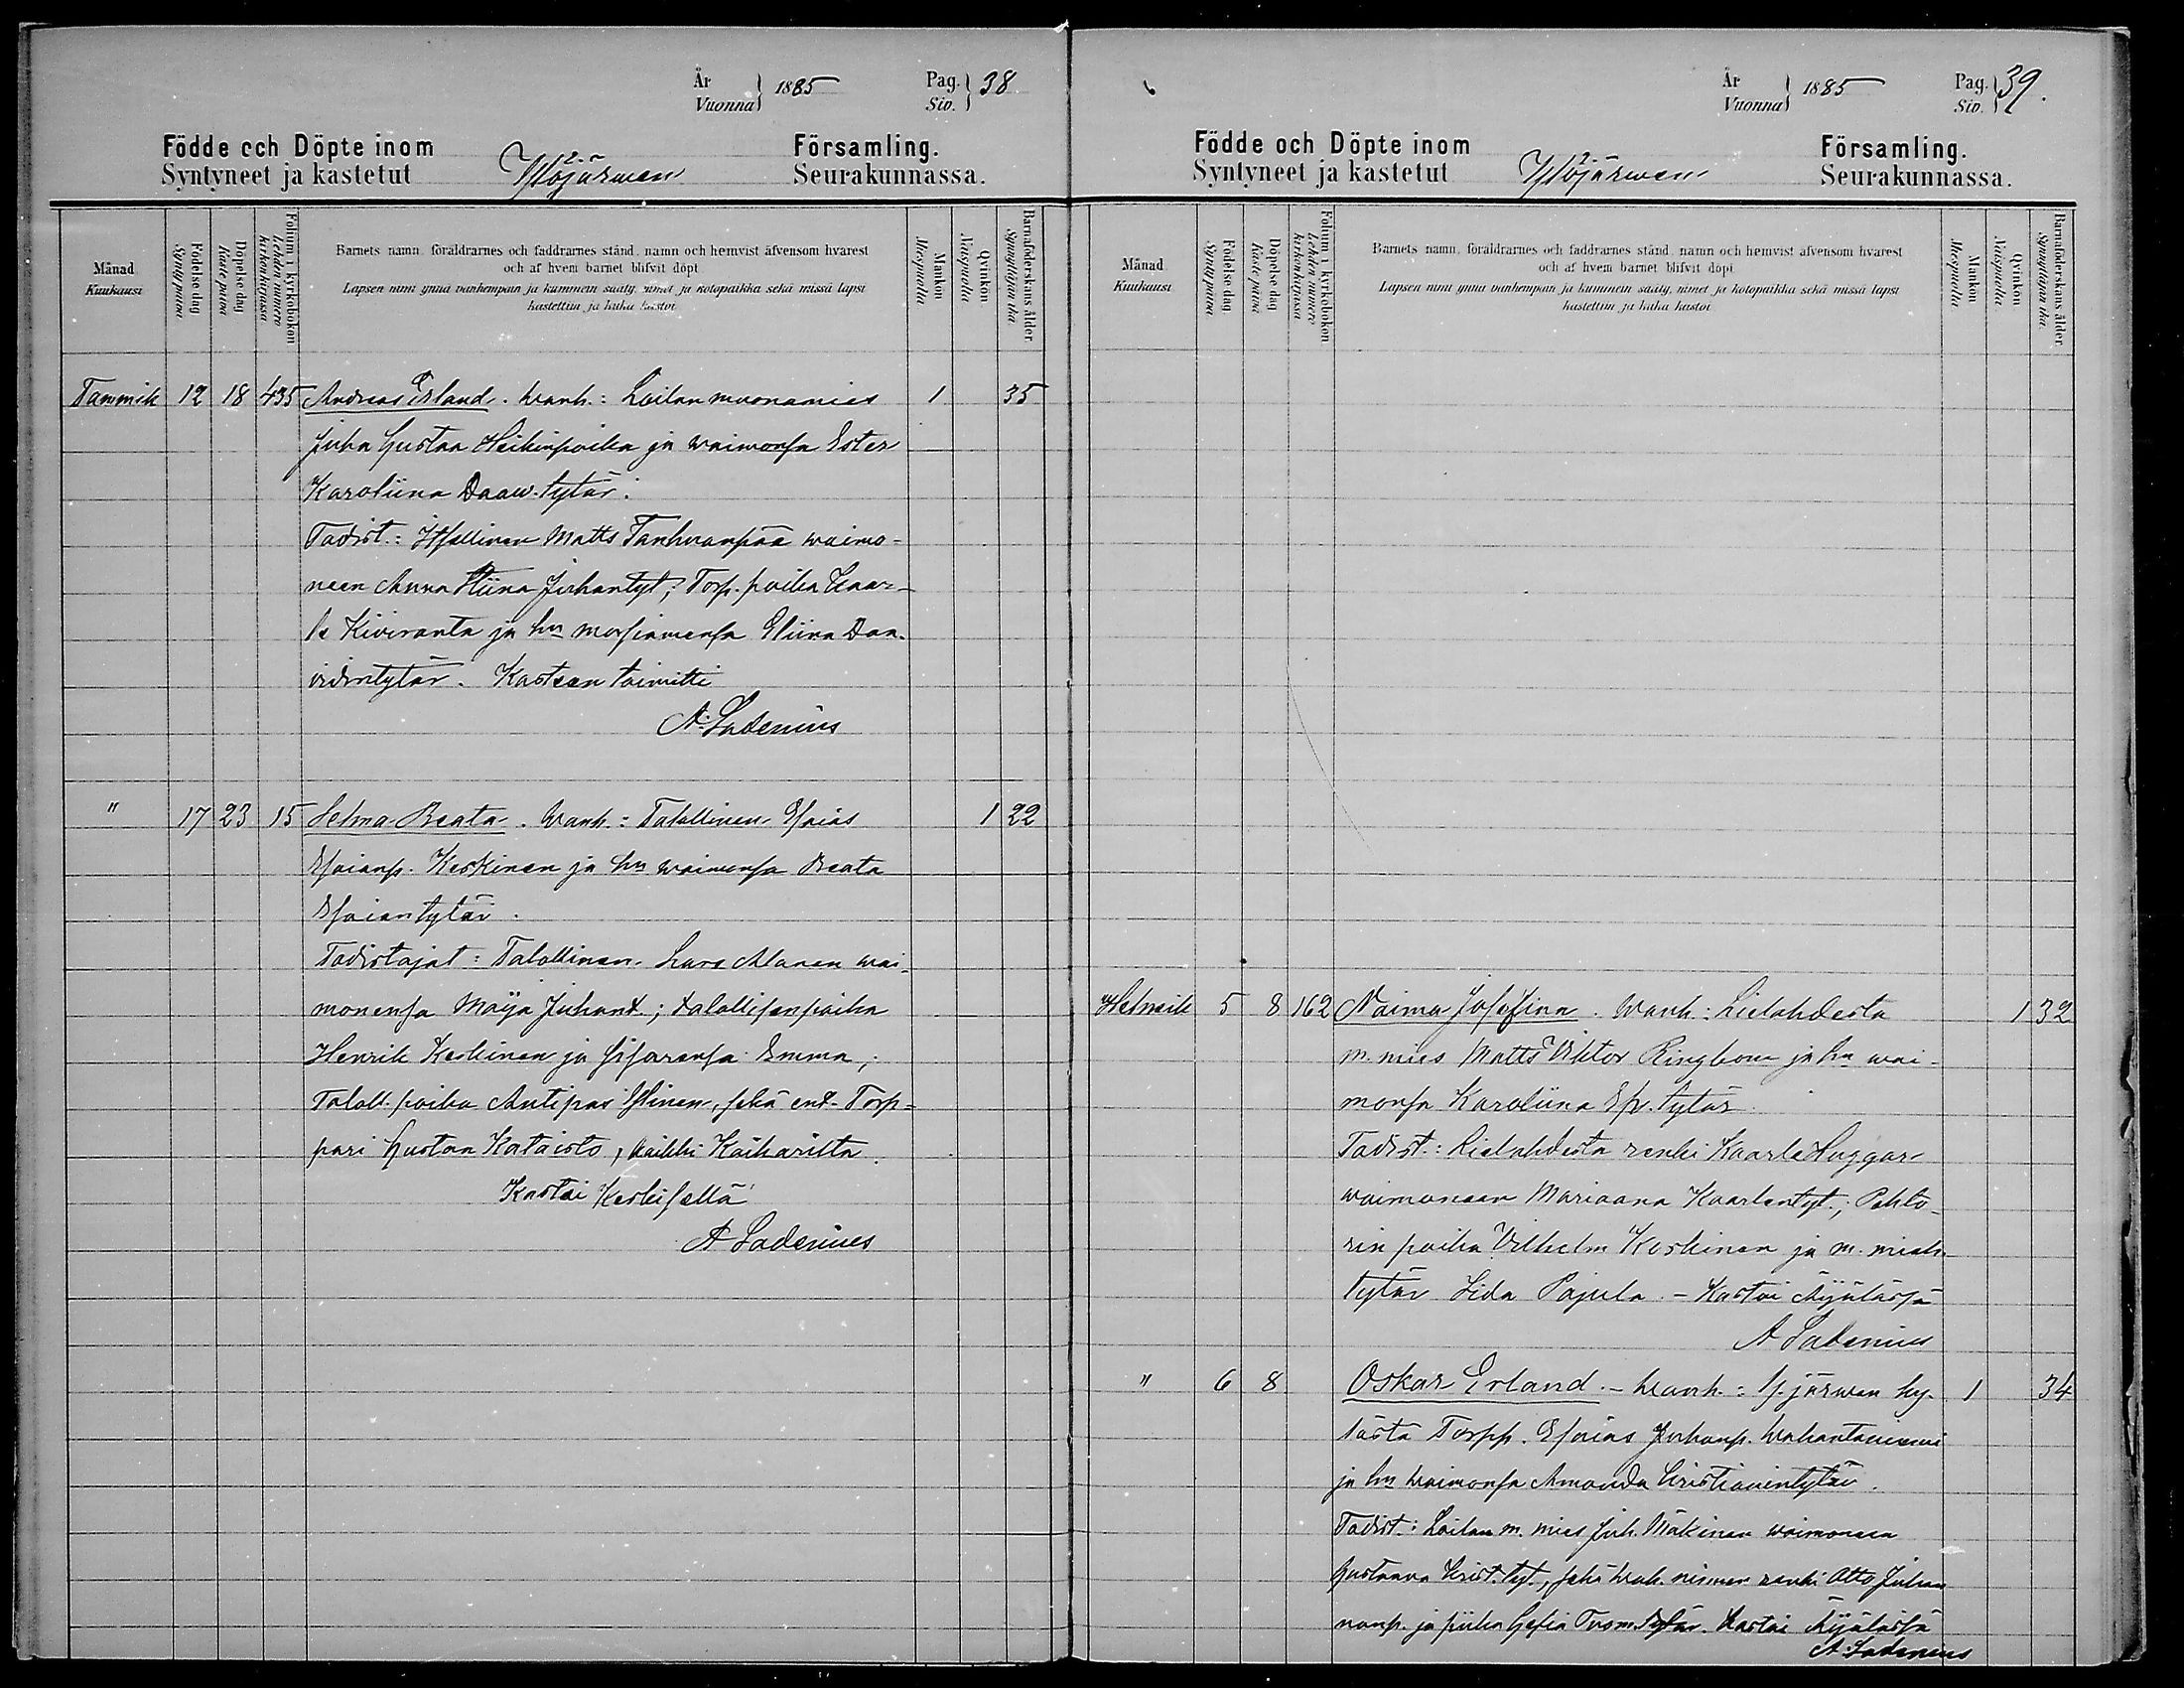 År
Vuonna } 1885
Pag.
Siv. } 38
Födde och Döpte inom Församling.
Syntyneet ja kastetut Ylöjärwen Seurakunnassa.
Månad
Kuukausi
Födelse dag
Syntypäivä
Döpelse dag
Kaste päivä
Folium i kyrkoboken
Lehden numero
kirkonkirjassa
Barnets namn, föräldrarnes och faddrarnes stånd, namn och hemvist äfvensom hvarest
och af hvem barnet blifvit döpt.
Lapsen nimi ynnä vanhempain ja kummein sääty, nimet ja kotopaikka sekä missä lapsi
kastettiin ja kuka kastoi
Mankön
Miespuolia
Qvinkön
Naispuolia
Barnaföderskans ålder.
Synnyttäjän ikä
Tammik 12 18 435 Andreas Erland. Wanh.: Loilan muonamies 1 35
Juha Gustaa Heikinpoika ja waimonsa Ester
Karoliina Daaw. tytär.
Todist.: Itsellinen Matts Tanhuanpää waimo-
neen Anna Stiina Juhantyt.; Torp. poika Kaar-
le Kiviranta ja hn morsiamensa Eliina Daa-
vidintytär. Kasteen toimitti
A. Ladenius
" 17 23 15 Selma Beata. Wanh.: Talollinen Esaias 1 22
Esaianp. Keskinen ja hn waimonsa Beata
Esaiantytär.
Todistajat: Talollinen Lars Alanen wai-
monensa Maija Juhant.; talollisenpoika
Henrik Keskinen ja sisarensa Emma;
Taloll. poika Antipas sekä ent. Torp-
pari Gustaa Kataisto, kaikki Kaiharilta.
Kastoi Keskisellä
A Ladenius
År
Vuonna } 1885
Pag.
Siv. } 39.
Födde och Döpte inom Församling.
Syntyneet ja kastetut Ylöjärwen Seurakunnassa.
Månad
Kuukausi
Födelse dag
Syntypäivä
Döpelse dag
Kaste päivä
Folium i kyrkoboken
Lehden numero
kirkonkirjassa
Barnets namn, föräldrarnes och faddrarnes stånd, namn och hemvist äfvensom hvarest
och af hvem barnet blifvit döpt.
Lapsen nimi ynnä vanhempain ja kummein sääty, nimet ja kotopaikka sekä missä lapsi
kastettiin ja kuka kastoi
Mankön
Miespuolia
Qvinkön
Naispuolia
Barnaföderskans ålder
Synnyttäjän ikä
Helmik 5 8 162 Naima Josefina. Wanh.: Lielahdesta 1 32
m. mies Matts Viktor Ringbom ja hn wai-
monsa Karoliina tytär.
Todist.: Lielahdesta renki Kaarle Huggar
waimoneen Mariaana Kaarlentyt.; Pehto-
rin poika Vilhelm Koskinen ja m. mieh.
tytär Lida Pajula. - Kastoi Äijälässä
A Ladenius
" 6 8 Oskar Erland. - Wanh.: Y. järwen ky- 1 34
lästä Torpp. Esaias Juhanp. Wahantaniemi
ja hn waimonsa Amanda Kristianintytär.
Todist.: Loilan m. mies Juh. Mäkinen waimoneen
Gustaava Krist. tyt., sekä Wah. niemen renki Otto Juhan
nanp. ja piika Sofia Tuom. tytär. Kastoi Äijälässä
A. Ladenius